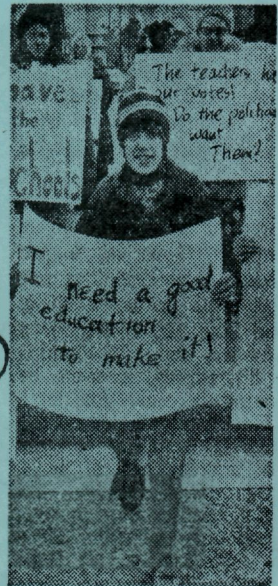 ave
the
chools
The teachers h
our votes!
Do the politic
want
Them?
I need a good
education
to make it!